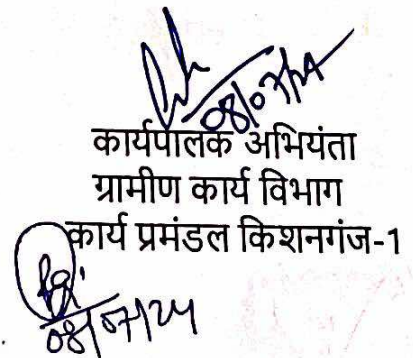 08/07/24
कार्यपालक अभियंता
ग्रामीण कार्य विभाग
कार्य प्रमंडल किशनगंज-1
08/07/24